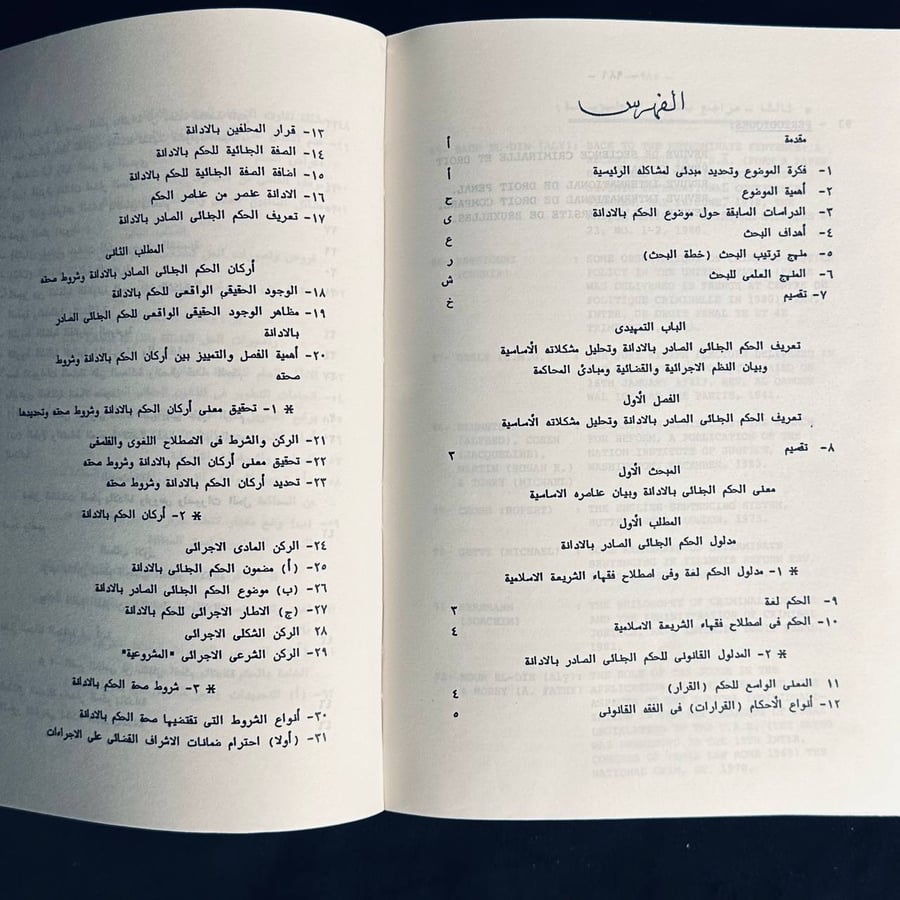 الفهرس
مقدمة أ
١- فكرة الموضوع وتحديد مبدئى لمشاكله الرئيسية أ
٢- أهمية الموضوع ح
٣- الدراسات السابقة حول موضوع الحكم بالادانة ى
٤- أهداف البحث ع
٥- منهج ترتيب البحث (خطة البحث) ر
٦- المنهج العلمى للبحث ش
٧- تقسيم خ
الباب التمهيدى
تعريف الحكم الجنائى الصادر بالادانة وتحليل مشكلاته الأساسية
وبيان النظم الاجرائية والقضائية ومبادئ المحاكمة
الفصل الأول
تعريف الحكم الجنائى الصادر بالادانة وتحليل مشكلاته الأساسية
٨- تقسيم ٢
المبحث الأول
معنى الحكم الجنائى بالادانة وبيان عناصره الاساسية
المطلب الأول
مدلول الحكم الجنائى الصادر بالادانة
* ١- مدلول الحكم لغة وفى اصطلاح فقهاء الشريعة الاسلامية
٩- الحكم لغة ٣
١٠- الحكم فى اصطلاح فقهاء الشريعة الاسلامية ٤
* ٢- المدلول القانونى للحكم الجنائى الصادر بالادانة
١١ المعنى الواسع للحكم (القرار) ٤
١٢- أنواع الأحكام (القرارات) فى الفقه القانونى ٥
١٣- قرار المحلفين بالادانة
١٤- الصفة الجنائية للحكم بالادانة
١٥- اضافة الصفة الجنائية للحكم بالادانة
١٦- الادانة عنصر من عناصر الحكم
١٧- تعريف الحكم الجنائى الصادر بالادانة
المطلب الثانى
أركان الحكم الجنائى الصادر بالادانة وشروط صحته
١٨- الوجود الحقيقى الواقعى للحكم بالادانة
١٩- مظاهر الوجود الحقيقى الواقعى للحكم الجنائى الصادر
بالادانة
٢٠- أهمية الفصل والتمييز بين أركان الحكم بالادانة وشروط
صحته
* ١- تحقيق معنى أركان الحكم بالادانة وشروط صحته وتحديدها
٢١- الركن والشرط فى الاصطلاح اللغوى والفلسفى
٢٢- تحقيق معنى أركان الحكم بالادانة وشروط صحته
٢٣- تحديد أركان الحكم بالادانة وشروط صحته
* ٢- أركان الحكم بالادانة
٢٤- الركن المادى الاجرائى
٢٥- (أ) مضمون الحكم الجنائى بالادانة
٢٦- (ب) موضوع الحكم الجنائى الصادر بالادانة
٢٧- (ج) الاطار الاجرائى للحكم بالادانة
٢٨ الركن الشكلى الاجرائى
٢٩- الركن الشرعى الاجرائى "المشروعية"
* ٣- شروط صحة الحكم بالادانة
٣٠- أنواع الشروط التى تقتضيها صحة الحكم بالادانة
٣١- (أولا) احترام ضمانات الاشراف القضائى على الاجراءات